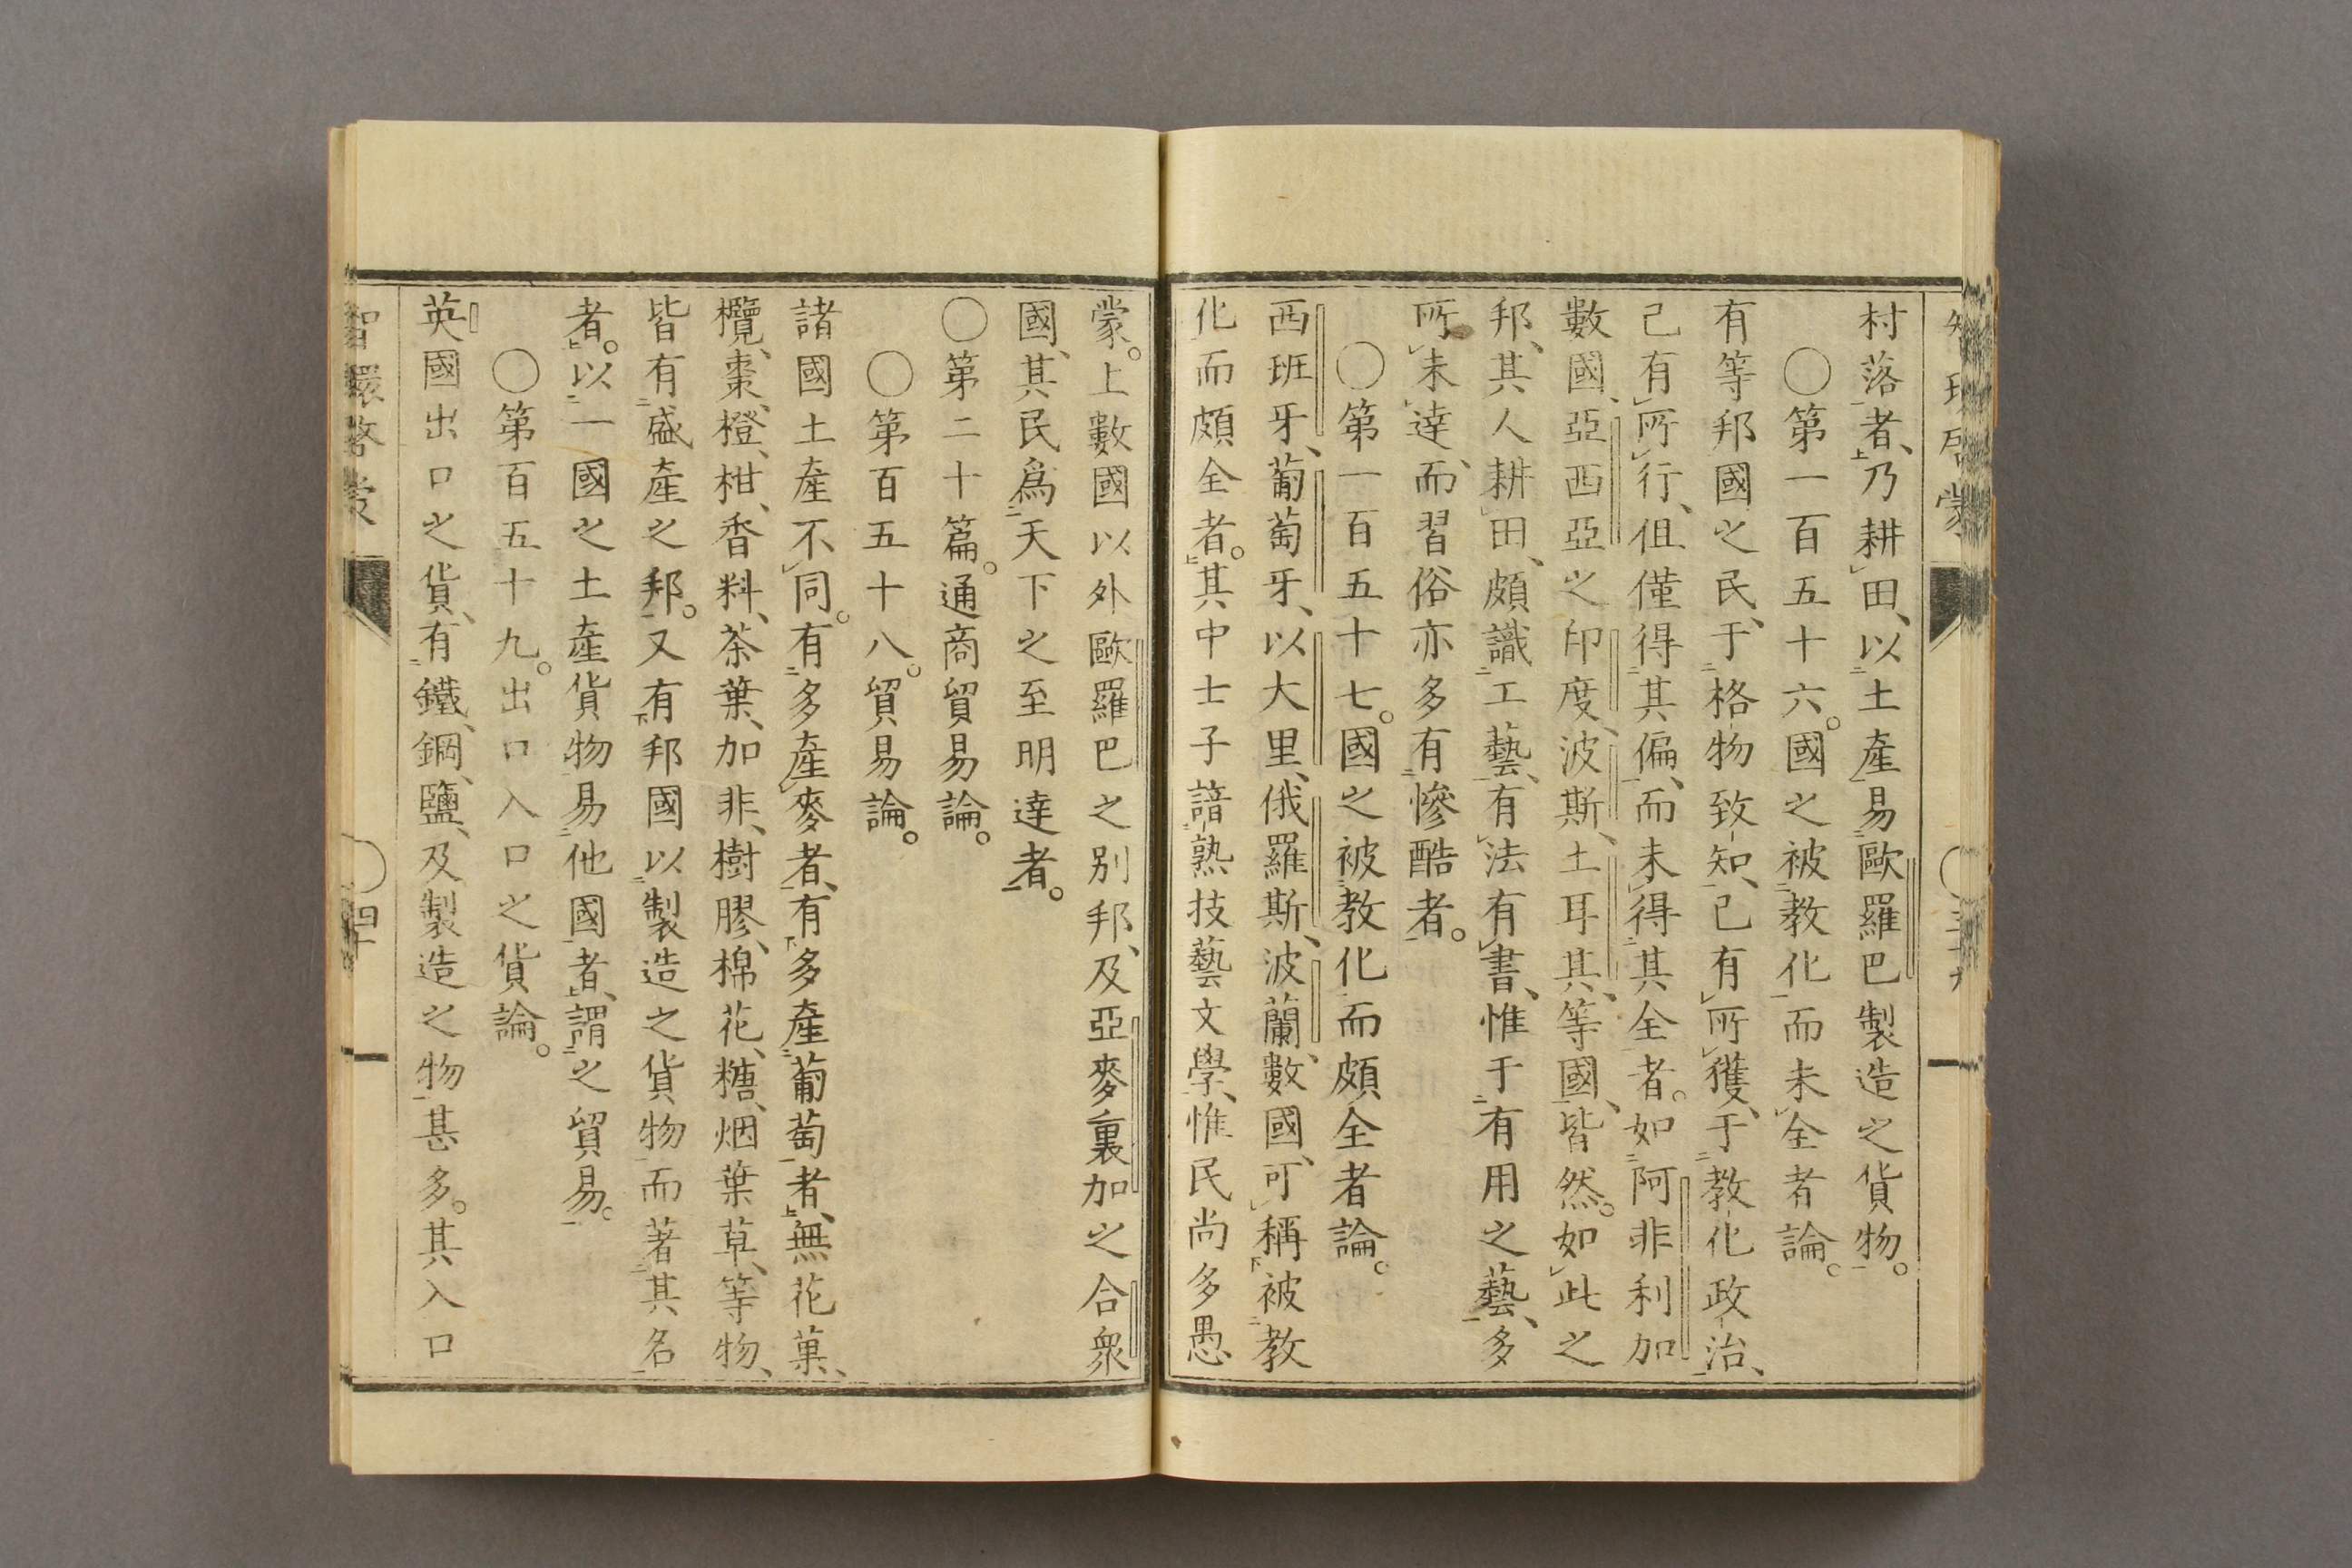 智環啓蒙
村落者、乃耕田、以土產易歐羅巴製造之貨物。
〇第一百五十六。國之被教化而未全者論。
有等邦國之民、于格物致知、已有所獲、于教化政治、
已有所行、但僅得其偏、而未得其全者。如阿非利加
數國、亞西亞之印度、波斯、土耳其、等國、皆然。如此之
邦、其人耕田、頗識工藝、有法有書、惟于有用之藝、多
所未達、而習俗亦多有慘酷者。
〇第一百五十七。國之被教化而頗全者論。
西班牙、葡萄牙、以大里、俄羅斯、波蘭、數國、可稱被教
化而頗全者。其中士子諳熟技藝文學、惟民尚多愚
蒙。上數國以外歐羅巴之別邦、及亞麥裏加之合衆
國、其民爲天下之至明達者。
〇第二十篇。通商貿易論。
〇第百五十八。貿易論。
諸國土產不同。有多產麥者、有多產葡萄者、無花菓、
欖、棗、橙、柑、香料、茶葉、加非、樹膠、棉花、糖、烟葉草、等物、
皆有盛產之邦。又有邦國以製造之貨物而著其名
者。以一國之土產貨物易他國者、謂之貿易。
〇第百五十九。出口入口之貨論。
英國出口之貨、有鐵、鋼、鹽、及製造之物甚多。其入口
智環啓蒙
〇四十